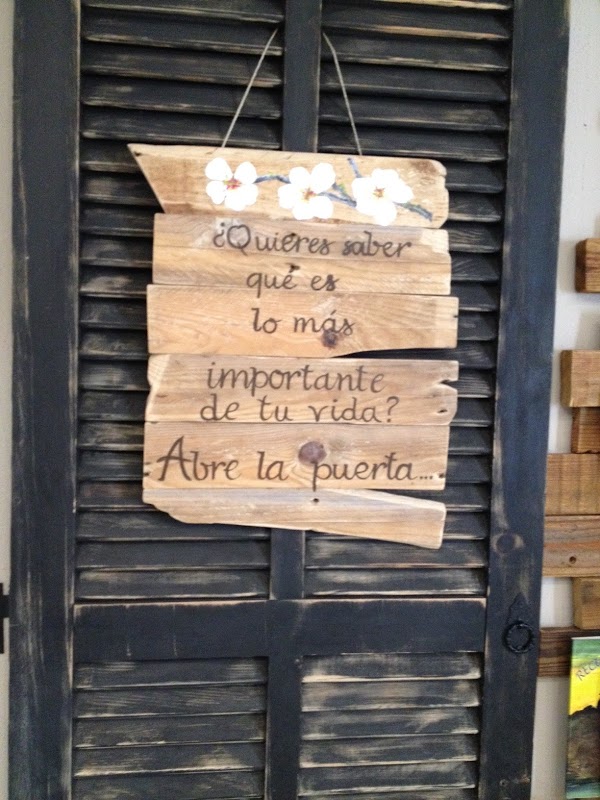 ¿Quieres saber
que es
lo más
importante
de tu vida?
Abre la puerta...